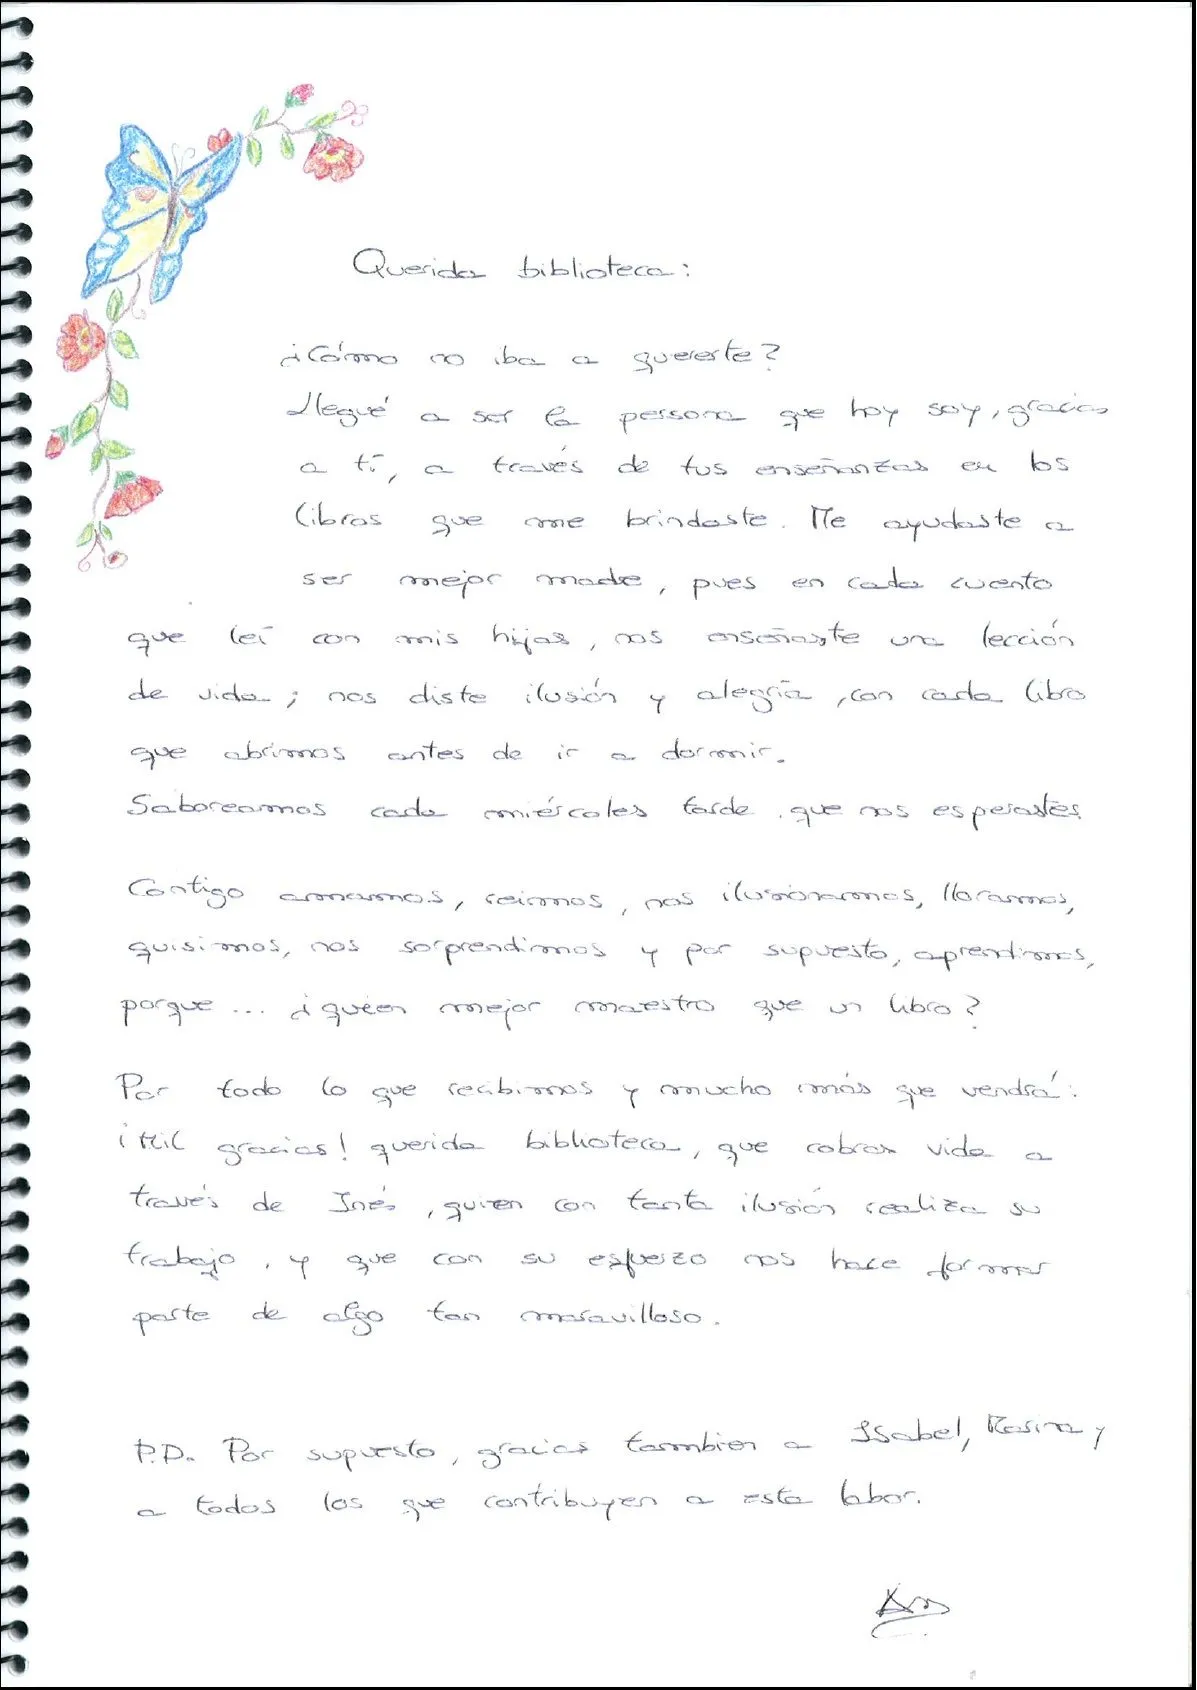 Querida biblioteca:
¿Cómo no iba a quererte?
Llegué a ser la persona que hoy soy, gracias
a tí, a través de tus enseñanzas en los
libros que me brindaste. Me ayudaste a
ser mejor madre, pues en cada cuento
que leí con mis hijas, nos enseñaste una lección
de vida; nos diste ilusión y alegría, con cada libro
que abrimos antes de ir a dormir.
Saboreamos cada miércoles tarde, que nos esperastes
Contigo amamos, reimos, nos ilusionamos, lloramos,
quisimos, nos sorprendimos y por supuesto, aprendimos,
porque ... ¿quién mejor maestro que un libro?
Por todo lo que recibimos y mucho más que vendrá:
¡Mil gracias! querida biblioteca, que cobras vida a
través de Inés, quien con tanta ilusión realiza su
trabajo, y que con su esfuerzo nos hace formar
parte de algo tan maravilloso.
P.D. Por supuesto, gracias tambien a Isabel, y
a todos los que contribuyen a esta labor.